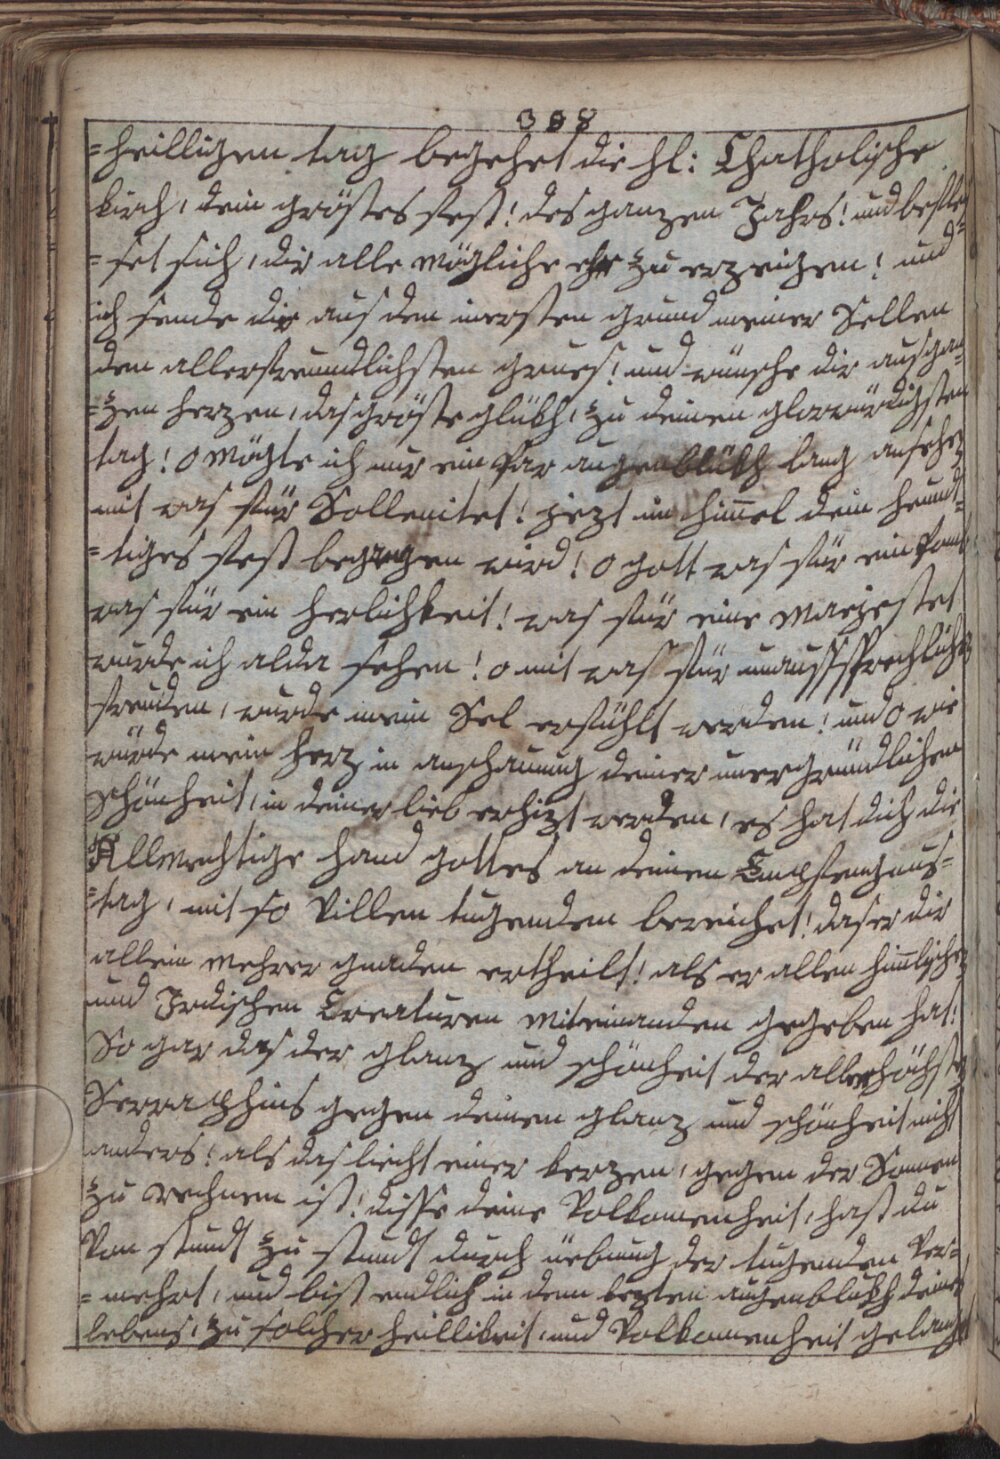 388
=heilligen tag begehet die hl: Chatholische
kirch, dein gröstes fest! des ganzen Jahrs! und beflei=
=set sich, dir alle mögliche ehr zu erzeigen! und
ich sende dir aus den innersten grund meiner Sellen
den allerfreundlichsten grues! und wünsche dir aus gan=
=zen herzen, das gröste glükh, zu deinen glorwürdigsten
tag! o mögte ich nur ein par augenblükh lang ansehen
mit was für Sollenitet! jezt im himel dein heund=
=tiges fest begangen wird! o gott was für ein
was für ein herlichkeit! was für eine Majestet
wurde ich alda sehen! o mit was für unaussprechlichen
freuden, wurde mein Sel erfühlt werden! und o wie
würde mein herz in anschauung deiner unergründlichen
schönheit, in deiner lieb erhizt werden, es hat dich die
Allmechtige hand gottes an deinen Empfengnus=
=tag, mit so villen tugenden bereichet! das er dir
allein mehrer gnaden ertheilt! als er allen himlischen
und Irdischen Creaturen miteinanden gegeben hat!
So gar das der glanz und schönheit der allerhöchsten
Serraphins gegen deinen glanz und schönheit nicht
anders! als das liecht einer kerzen, gegen der Sonnen
zu rechnen ist! disse deine Volkomenheit, hast du
Von stundt zu stundt durch üebung der tugenden Ver=
=mehrt, und bist endlich in dem lezten augenblükh deines
lebens, zu solcher heillikeit, und Volkomenheit gelangt